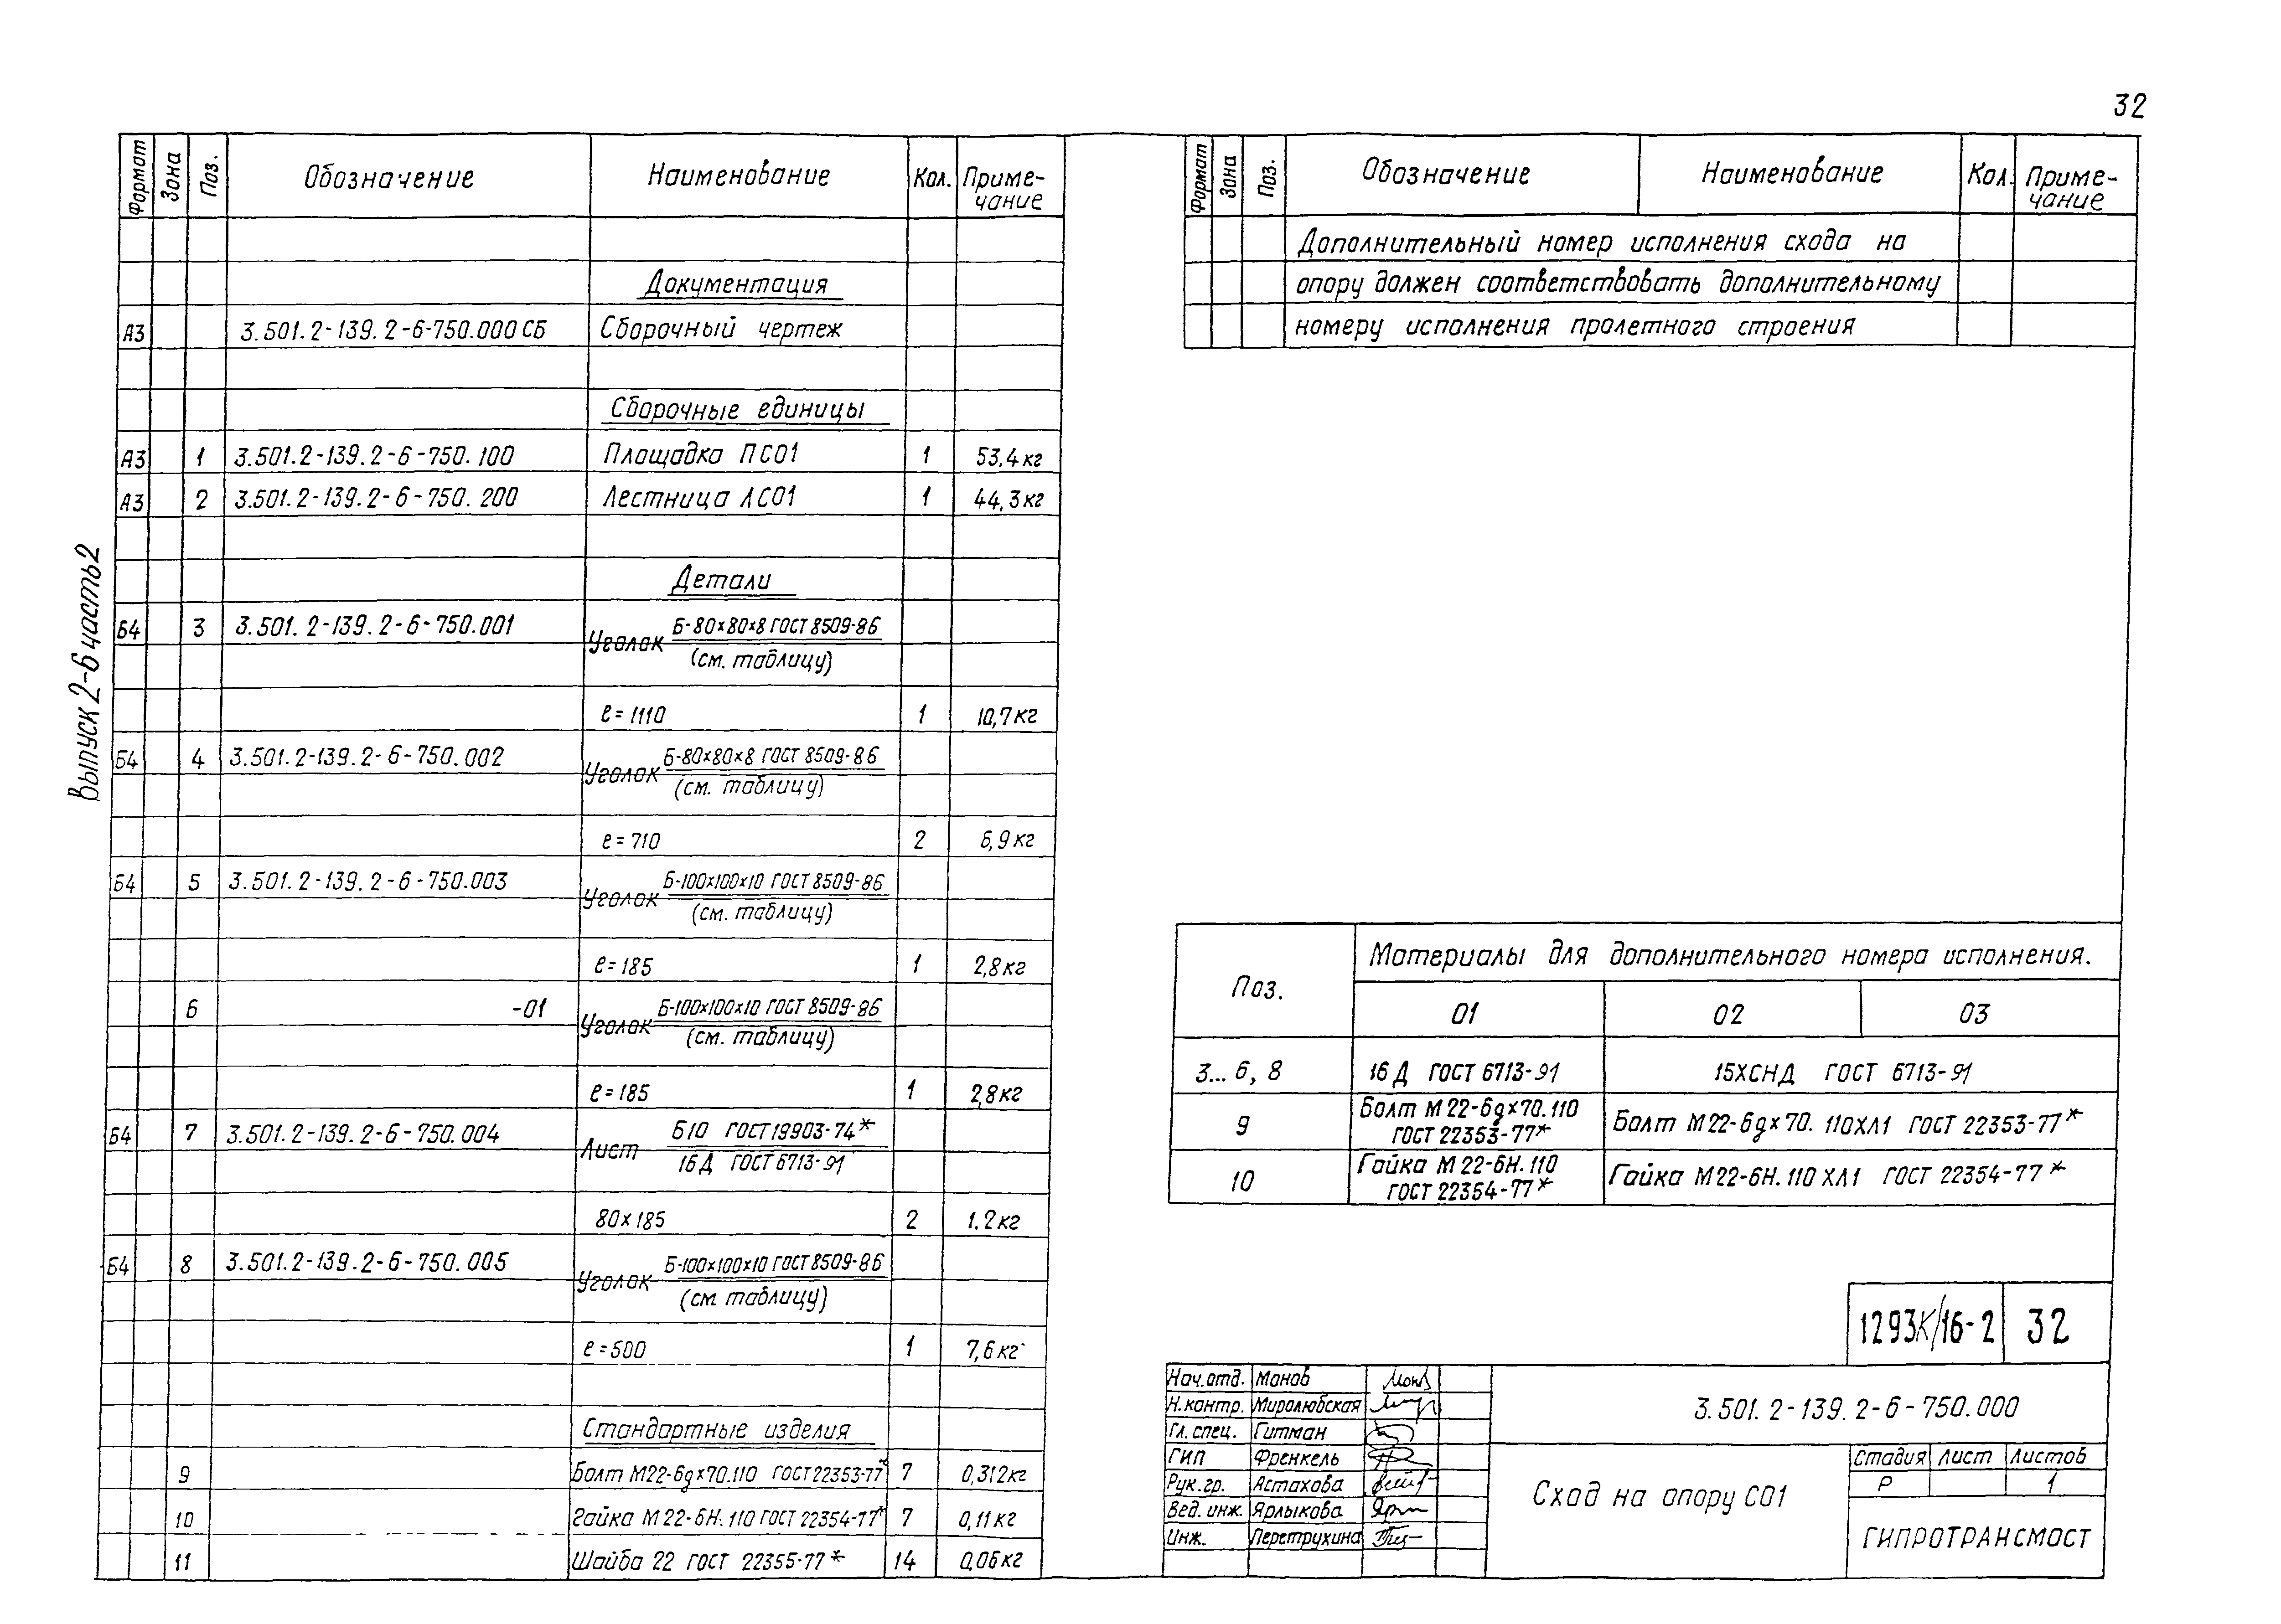 32
Выпуск 2-6 часть 2
Формат Зона Поз. Обозначение Наименование Кол. Приме-
чание
Документация
А3 3.501.2-139.2-6-750.000 СБ Сборочный чертеж
Сборочные единицы
А3 1 3.501.2-139.2-6-750.100 Площадка ПС01 1 53,4 кг
А3 2 3.501.2-139.2-6-750.200 Лестница ЛС01 1 44,3 кг
Детали
Б4 3 3.501.2-139.2-6-750.001 Уголок Б-80х80х8 ГОСТ 8509-86
(см. таблицу)
ℓ=1110 1 10,7 кг
Б4 4 3.501.2-139.2-6-750.002 Уголок Б-80х80х8 ГОСТ 8509-86
(см. таблицу)
ℓ=710 2 6,9 кг
Б4 5 3.501.2-139.2-6-750.003 Уголок Б-100х100х10 ГОСТ 8509-86
(см. таблицу)
ℓ=185 1 2,8 кг
6 -01 Уголок Б-100х100х10 ГОСТ 8509-86
(см. таблицу)
ℓ=185 1 2,8 кг
Б4 7 3.501.2-139.2-6-750.004 Лист Б10 ГОСТ 19903-74*
16Д ГОСТ 6713-91
80х185 2 1.2 кг
Б4 8 3.501.2-139.2-6-750.005 Уголок Б-100х100х10 ГОСТ 8509-86
(см таблицу)
ℓ=500 1 7,6 кг
Стандартные изделия
9 Болт М22-6gх70.110 ГОСТ 22353-77* 7 0,312 кг
10 Гайка М22-6Н.110 ГОСТ 22354-77* 7 0,11 кг
11 Шайба 22 ГОСТ 22355-77* 14 0,06 кг
Формат Зона Поз. Обозначение Наименование Кол. Приме-
чание
Дополнительный номер исполнения схода на
опору должен соответствовать дополнительному
номеру исполнения пролетного строения
Поз. Материалы для дополнительного номера исполнения.
01 02 03
3... 6, 8 16Д ГОСТ 6713-91 15ХСНД ГОСТ 6713-91
9 Болт М22-6gх70.110
ГОСТ 22353-77* Болт М22-6gх70. 110ХЛ1 ГОСТ 22353-77*
10 Гайка М22-6Н.110
ГОСТ 22354-77* Гайка М22-6Н.110 ХЛ1 ГОСТ 22354-77*
1293К/16-2 32
Нач.отд. Монов
Н.контр. Миролюбская
Гл.спец. Гитман
ГИП Френкель
Рук.гр. Астахова
Вед.инж. Ярлыкова
Инж. Перетрухина
3.501.2-139.2-6-750.000
Сход на опору С01
Стадия Лист Листов
Р 1
ГИПРОТРАНСМОСТ